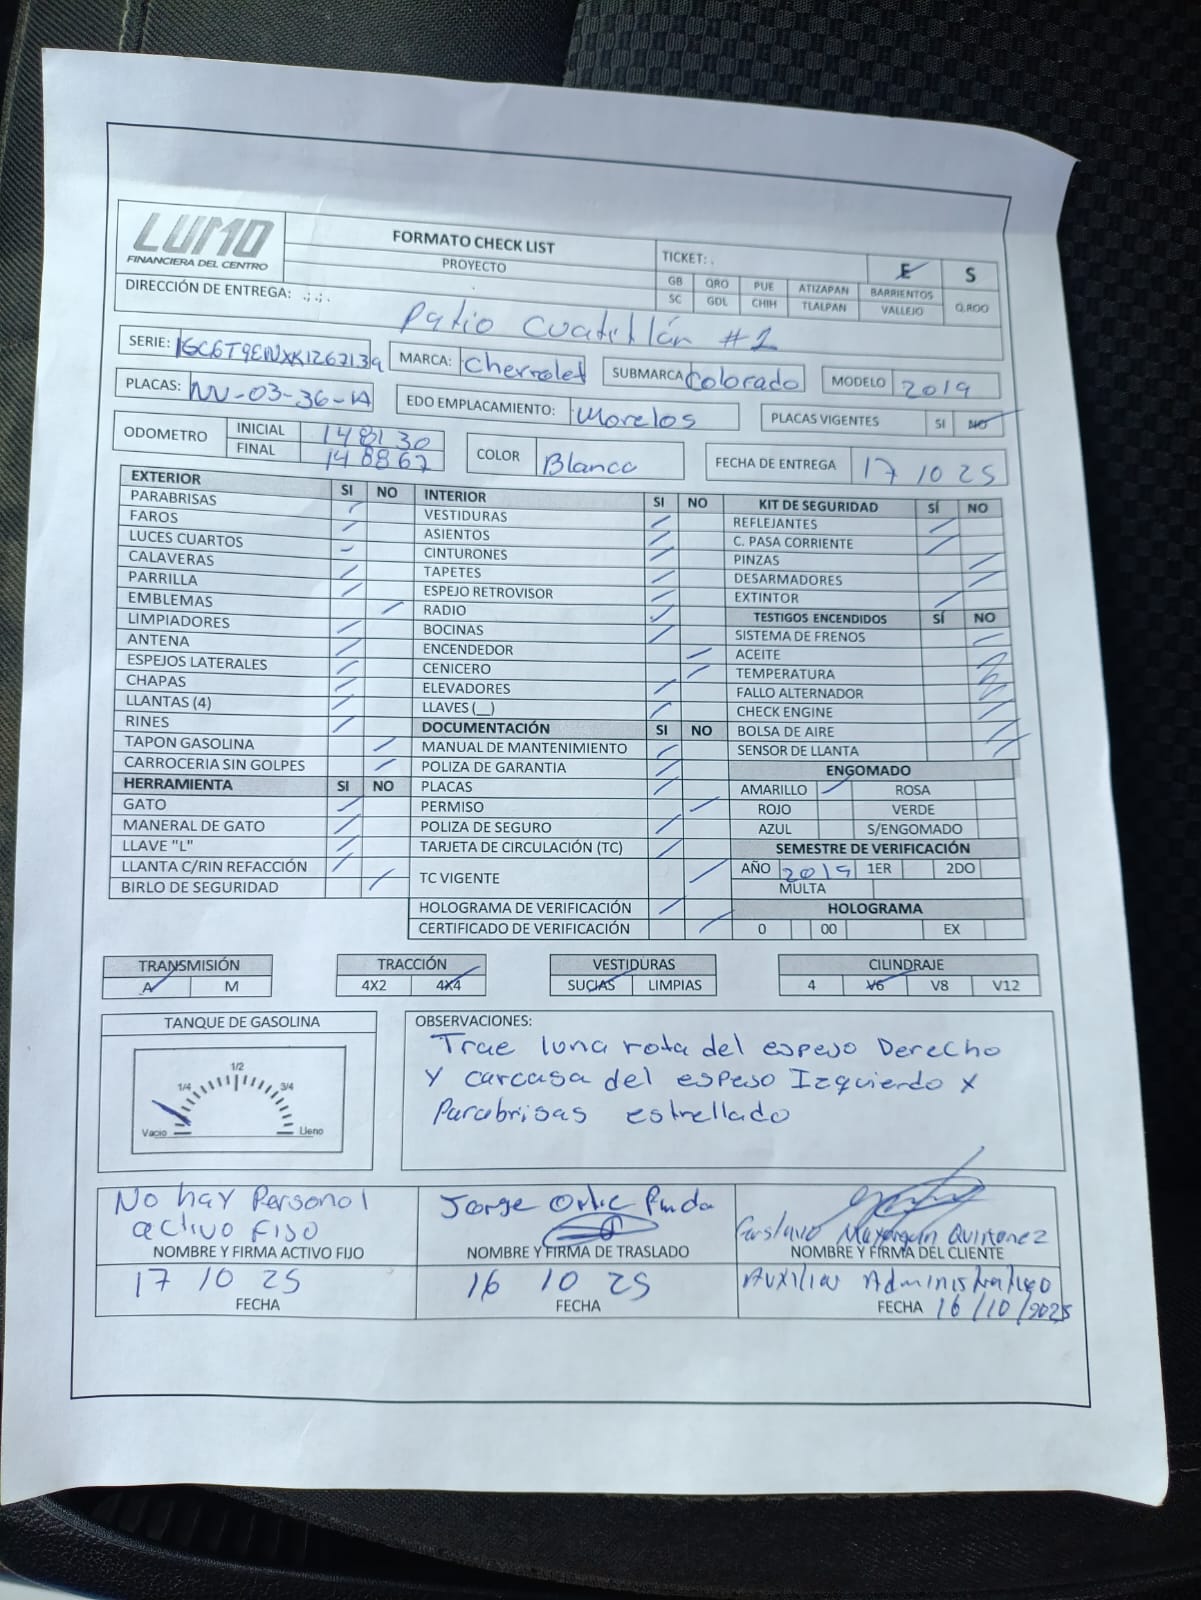 LUMO
FINANCIERA DEL CENTRO
FORMATO CHECK LIST
PROYECTO
TICKET: .
E S
GB QRO PUE ATIZAPAN BARRIENTOS
SC GDL CHIH TLALPAN VALLEJO Q.ROO
DIRECCIÓN DE ENTREGA: .;.;.
Patio Cuatitlán #2
SERIE: 1GC6T9ENXK1267139 MARCA: Chevrolet SUBMARCA Colorado MODELO 2019
PLACAS: NV-03-36-1A EDO EMPLACAMIENTO: Morelos PLACAS VIGENTES SI NO
ODOMETRO INICIAL 148130
FINAL 148867
COLOR Blanco FECHA DE ENTREGA 17 10 25
EXTERIOR SI NO
PARABRISAS
FAROS
LUCES CUARTOS
CALAVERAS
PARRILLA
EMBLEMAS
LIMPIADORES
ANTENA
ESPEJOS LATERALES
CHAPAS
LLANTAS (4)
RINES
TAPON GASOLINA
CARROCERIA SIN GOLPES
HERRAMIENTA SI NO
GATO
MANERAL DE GATO
LLAVE "L"
LLANTA C/RIN REFACCIÓN
BIRLO DE SEGURIDAD
INTERIOR SI NO
VESTIDURAS
ASIENTOS
CINTURONES
TAPETES
ESPEJO RETROVISOR
RADIO
BOCINAS
ENCENDEDOR
CENICERO
ELEVADORES
LLAVES (__)
DOCUMENTACIÓN SI NO
MANUAL DE MANTENIMIENTO
POLIZA DE GARANTIA
PLACAS
PERMISO
POLIZA DE SEGURO
TARJETA DE CIRCULACIÓN (TC)
TC VIGENTE
HOLOGRAMA DE VERIFICACIÓN
CERTIFICADO DE VERIFICACIÓN
KIT DE SEGURIDAD SÍ NO
REFLEJANTES
C. PASA CORRIENTE
PINZAS
DESARMADORES
EXTINTOR
TESTIGOS ENCENDIDOS SÍ NO
SISTEMA DE FRENOS
ACEITE
TEMPERATURA
FALLO ALTERNADOR
CHECK ENGINE
BOLSA DE AIRE
SENSOR DE LLANTA
ENGOMADO
AMARILLO ROSA
ROJO VERDE
AZUL S/ENGOMADO
SEMESTRE DE VERIFICACIÓN
AÑO 2019 1ER 2DO
MULTA
HOLOGRAMA
0 00 EX
TRANSMISIÓN
A M
TRACCIÓN
4X2 4X4
VESTIDURAS
SUCIAS LIMPIAS
CILINDRAJE
4 V6 V8 V12
TANQUE DE GASOLINA
1/4 1/2 3/4
Vacio Lleno
OBSERVACIONES:
Trae luna rota del espejo Derecho
Y carcasa del espejo Izquierdo x
Parabrisas estrellado
No hay Personal
activo Fijo
NOMBRE Y FIRMA ACTIVO FIJO
17 10 25
FECHA
Jorge
NOMBRE Y FIRMA DE TRASLADO
16 10 25
FECHA
Gustavo Quiñonez
NOMBRE Y FIRMA DEL CLIENTE
Auxiliar Administrativo
FECHA 16/10/2025